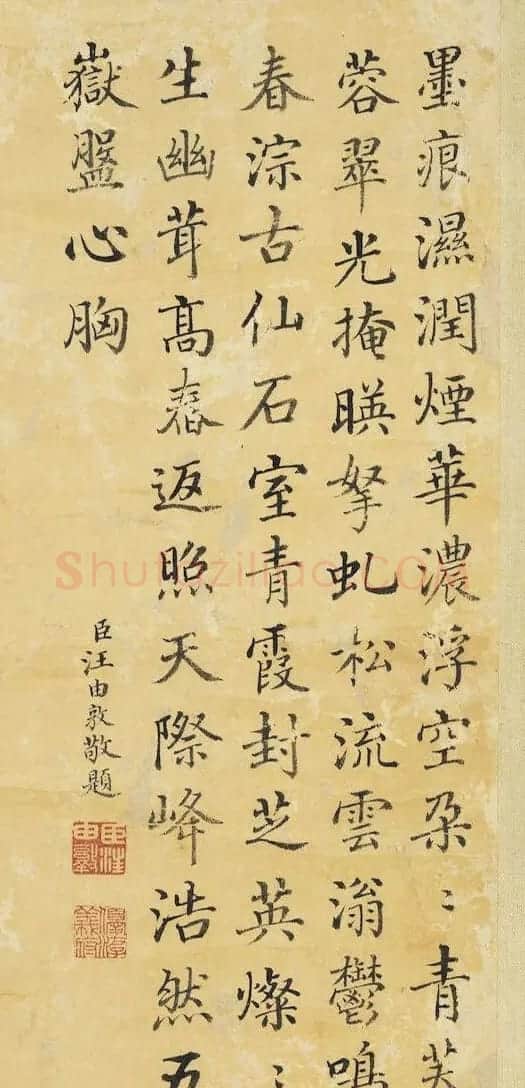 墨痕濕潤煙華濃浮空朵〻青芙
蓉翠光掩暎拏虬松流雲滃鬱鳴
春淙古仙石室青霞封芝英燦〻
生幽茸高舂返照天際峰浩然五
嶽盤心胸
臣汪由敦敬題
臣汪由敦
Shufaziliao.COM